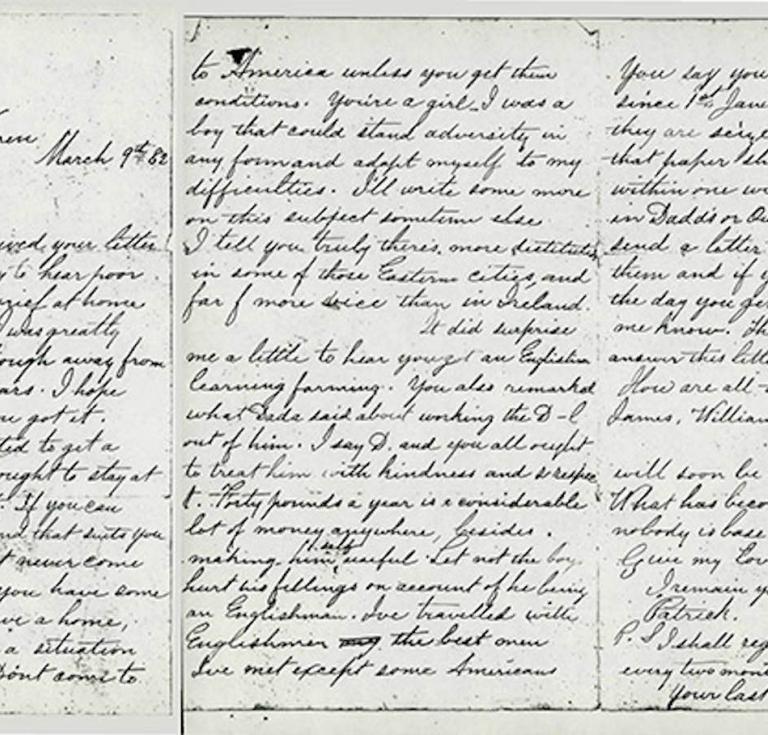 ren
March 9th 82
ived your letter
y to hear poor
grief at home
I was greatly
ough away from
ars. I hope
ou got it.
ted to get a
ought to stay at
. If you can
nd that suits you
t never come
you have some
ve a home,
a situation
Dont come to
to America unless you get them
conditions. You're a girl I was a
boy that could stand adversity in
any form and adapt myself to my
difficulties. I'll write some more
on this subject sometime else
I tell you truly there's more destitution
in some of those Eastern cities, and
far f more vice than in Ireland.
It did surprise
me a little to hear you got an Englishm
learning farming. You also remarked
what Dada said about working the D-l
out of him. I say D. and you all ought
to treat him with kindness and respec
t. Forty pounds a year is a considerable
lot of money anywhere, besides.
making him self useful. Let not the boy
hurt his fellings on account of he being
an Englishman. I've travelled with
Englishmen the best men
I've met except some Americans
You say you
since 1st Jan
they are seize
that paper sh
within one we
in Dadds or Ou
send a letter
them and if y
the day you ge
me know. Th
answer this lett
How are all
James, William
will soon be
What has beco
nobody is base
Give my Lov
I remain y
Patrick.
P. S I shall reg
every two mon
Your last